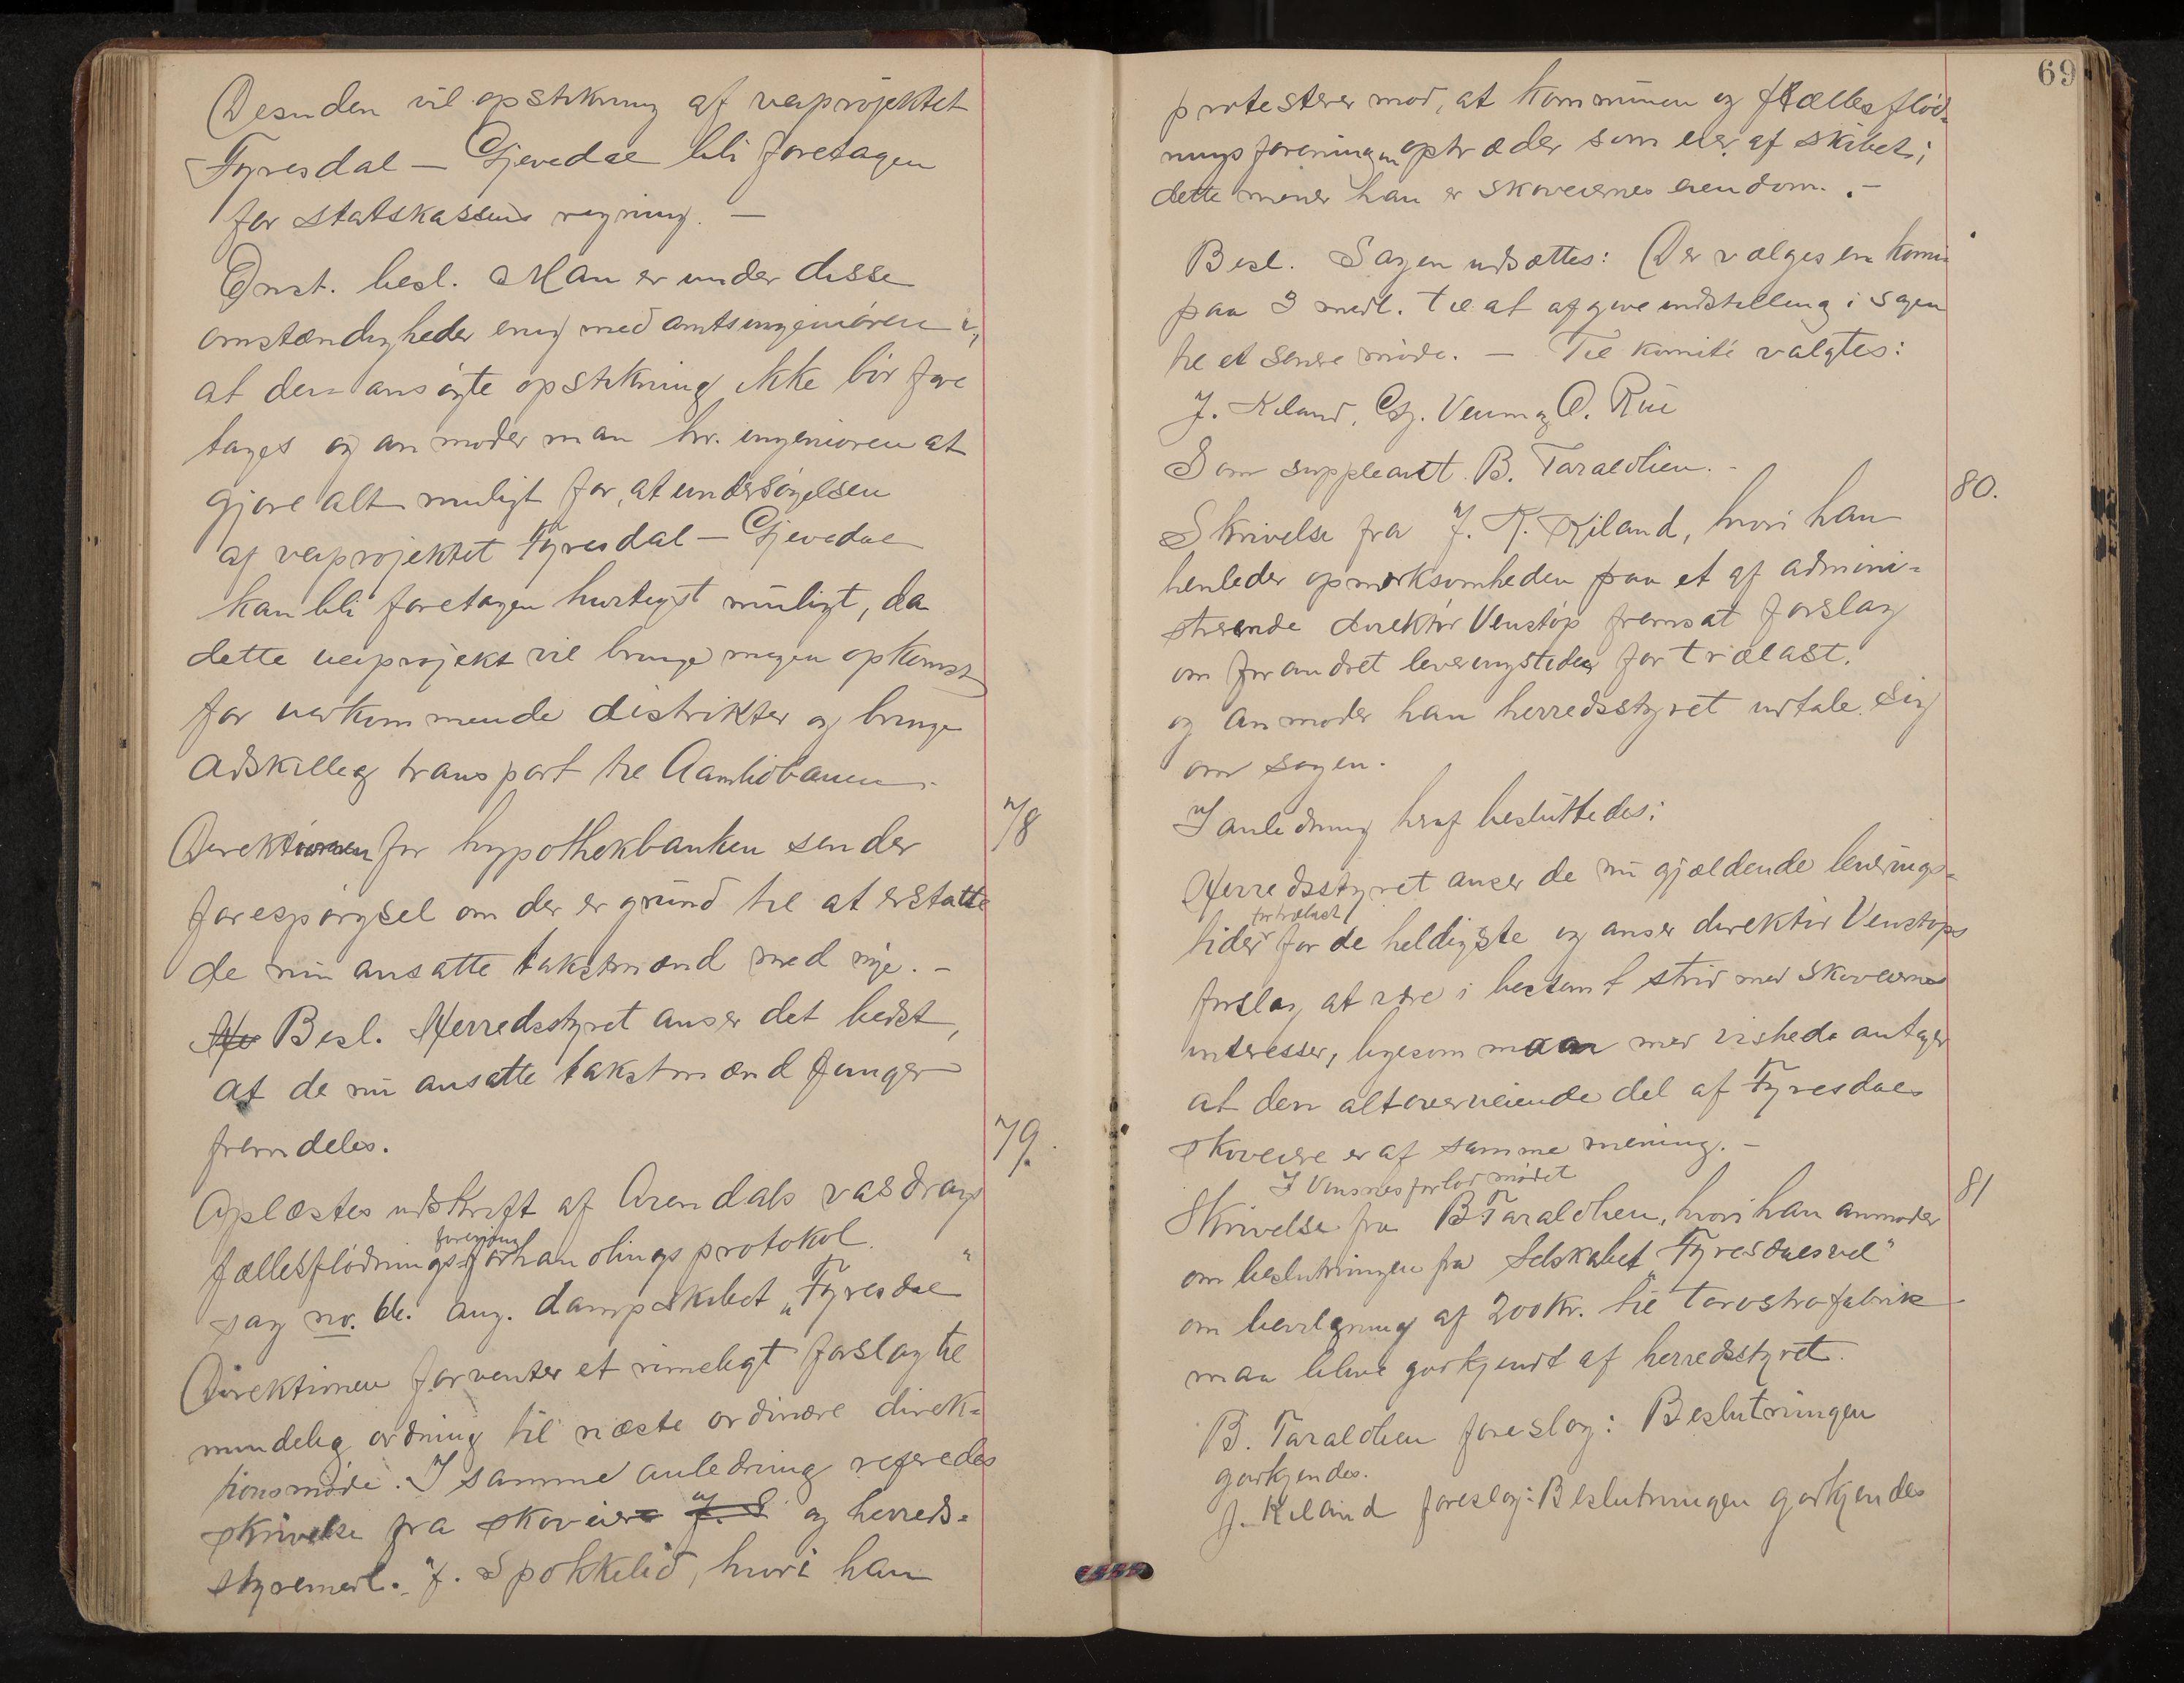 Desuden vil opstikning af veiprojektet
Fyresdal — Gjevedal bli foretagen
for statskassens regning. —
Enst. besl. Man er under disse
omstændigheder enig med amtsingeniøren i,
at den ansøgte opstikning ikke bør fore
tages og anmoder man hr. ingeniøren at
gjøre alt muligt for, at undersøgelsen
af veiprojektet Fyresdal — Gjevedal
kan bli foretagen hurtigst muligt, da
dette veiprojekt vil bringe megen opkomst
for vedkommende distrikter og bringe
adskillig transport til Aamlibanen.
78
Direktionen for hypothekbanken sender
forespørgsel om der er grund til at erstatte
de nu ansatte takstmænd med nye. —
He Besl. Herredsstyret anser det bedst,
at de nu ansatte takstmænd funger
fremdeles.
79.
Oplæstes udskrift af Arendals vasdrags
forenings
fællesflødnings forhandlingsprotokol
sag no. 66. ang. dampskibet „Fyresdal"
Direktionen forventer et rimeligt forslag til
mindelig ordning til næste ordinære direk-
tionsmøde. I samme anledning refereredes
skrivelse fra skoveier J. S og herreds-
styremedl. J. Spokkelid, hvori han
69
protesterer mod, at kommunen og fællesflød-
ningsforeningen optræder som eier af skibet;
dette mener han er skoveiernes eiendom. . —
Besl. Sagen udsættes: Der vælges en komi
paa 3 medl. til at afgive indstilling i sagen
til et senere møde. — Til komité valgtes:
J. Kiland, Gj. Veum og O. Rui
Som suppleant B. Taraldlien. —
80.
Skrivelse fra J. K. Kiland, hvori han
henleder opmerksomheden paa et af admini-
strerende direktør Venstøp fremsat forslag
om forandret leveringstider for trælast.
og anmoder han herredsstyret udtale sig
om sagen.
I anledning heraf besluttedes:
Herredsstyret anser de nu gjældende leverings-
for trælast
tider for de heldigste og anser direktør Venstøps
forslag at være i bestemt strid med skoveiernes
interesser, ligesom man med vished antager
at den altoverveiende del af Fyresdals
skoveiere er af samme mening. —
forlod mødet
81
Skrivelse fra B Taraldlien, hvori han anmoder
om beslutningen fra Selskabet „Fyresdals vel"
om bevilgning af 200 kr. til torvstrøfabrik
maa blive godkjendt af herredsstyret.
B. Taraldlien foreslog: Beslutningen
godkjendes.
J. Kiland foreslog: Beslutningen godkjendes